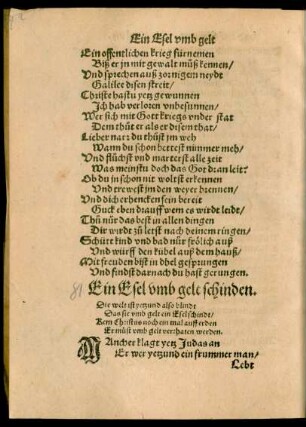 Ein Esel vmb gelt
Ein offentlichen krieg fürnemen
Biß er in mit gewalt müß kennen/
Vnd sprechen auß zornigem neydt
Galilee disen streit/
Christe hastu yetz gewunnen
Ich hab verloren vnbesunnen/
Wer sich mit Gott kriegs vnder stat
Dem thüt er als er disem that/
Lieber narr du thüst jm weh
Wann du schon bettest nimmer meh/
Vnd flüchst vnd marterst alle zeit
Was meinstu doch das Got dran leit?
Ob du in schon nit woltst erkennen
Vnd trewest jm den weyer brennen/
Vnd dich erhencken sein bereit
Guck eben drauff wem es wirdt leidt/
Thü nür das best in allen dingen
Dir wirdt zü letst nach deinem ringen/
Schürt kind vnd bad nür frölich auß
Vnd würff den kübel auß dem hauß/
Mit freuden bist in dhel gesprungen
Vnd findst darnach du hast gerungen.
81 Ein Esel vmb gelt schinden.
Die welt ist yetzund also blindt
Das sie vmb gelt ein Esel schindt/
Kem Christus noch ein mal auff erden
Er müst vmb gelt verrhaten werden.
MAncher klagt yetz Judas an
Er wer yetzund ein frummer man/
Lebt